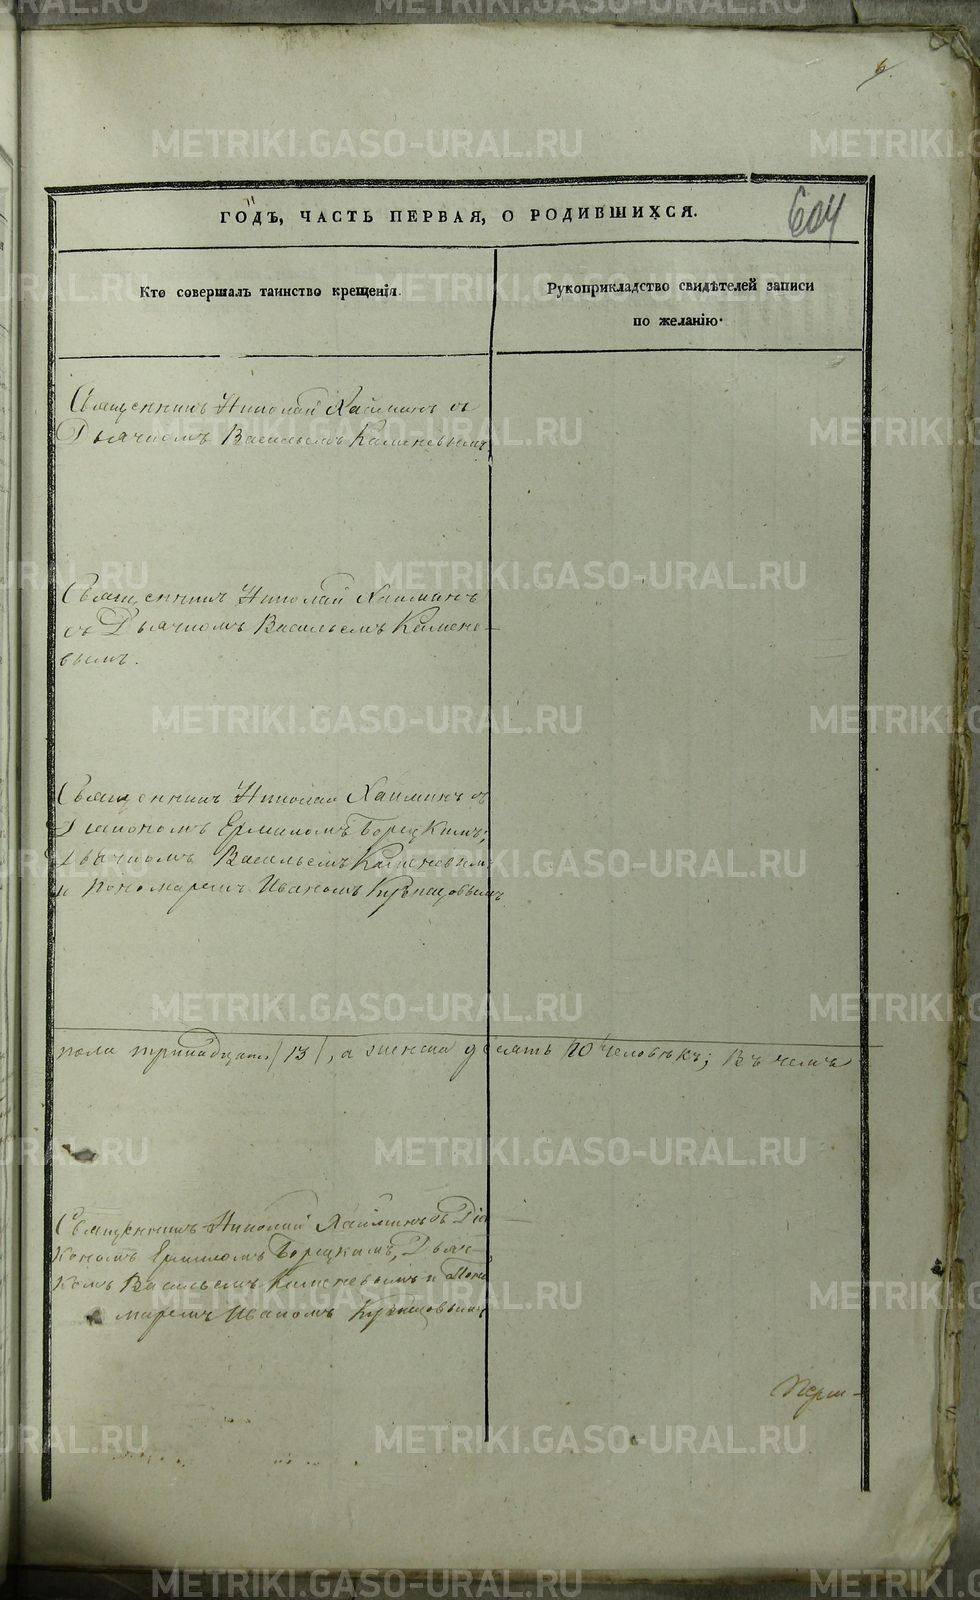 6.
ГОДЪ, ЧАСТЬ ПЕРВАЯ, О РОДИВШИХСЯ.
604
Кто совершалъ таинство крещенія.
Рукоприкладство свидѣтелей записи
по желанію.
Священникъ Николай Хайминъ съ
Дьячкомъ Васильемъ Каменевымъ
Священникъ Николай Хайминъ
съ Дьячкомъ Васильемъ Камене-
вымъ.
Священникъ Николай Хайминъ съ
Діакономъ Ермиломъ Борецкимъ,
Дьячкомъ Васильемъ Каменевымъ
и Пономаремъ Иваномъ Кузнецовымъ
пола тринадцать /13/, а женска десять /10/ человѣкъ; Въ чемъ
Священникъ Николай Хайминъ съ Діа
кономъ Ермиломъ Борецкимъ, Дьяч-
комъ Васильемъ Каменевымъ и Поно
маремъ Иваномъ Кузнецовымъ
METRIKI.GASO-URAL.RU